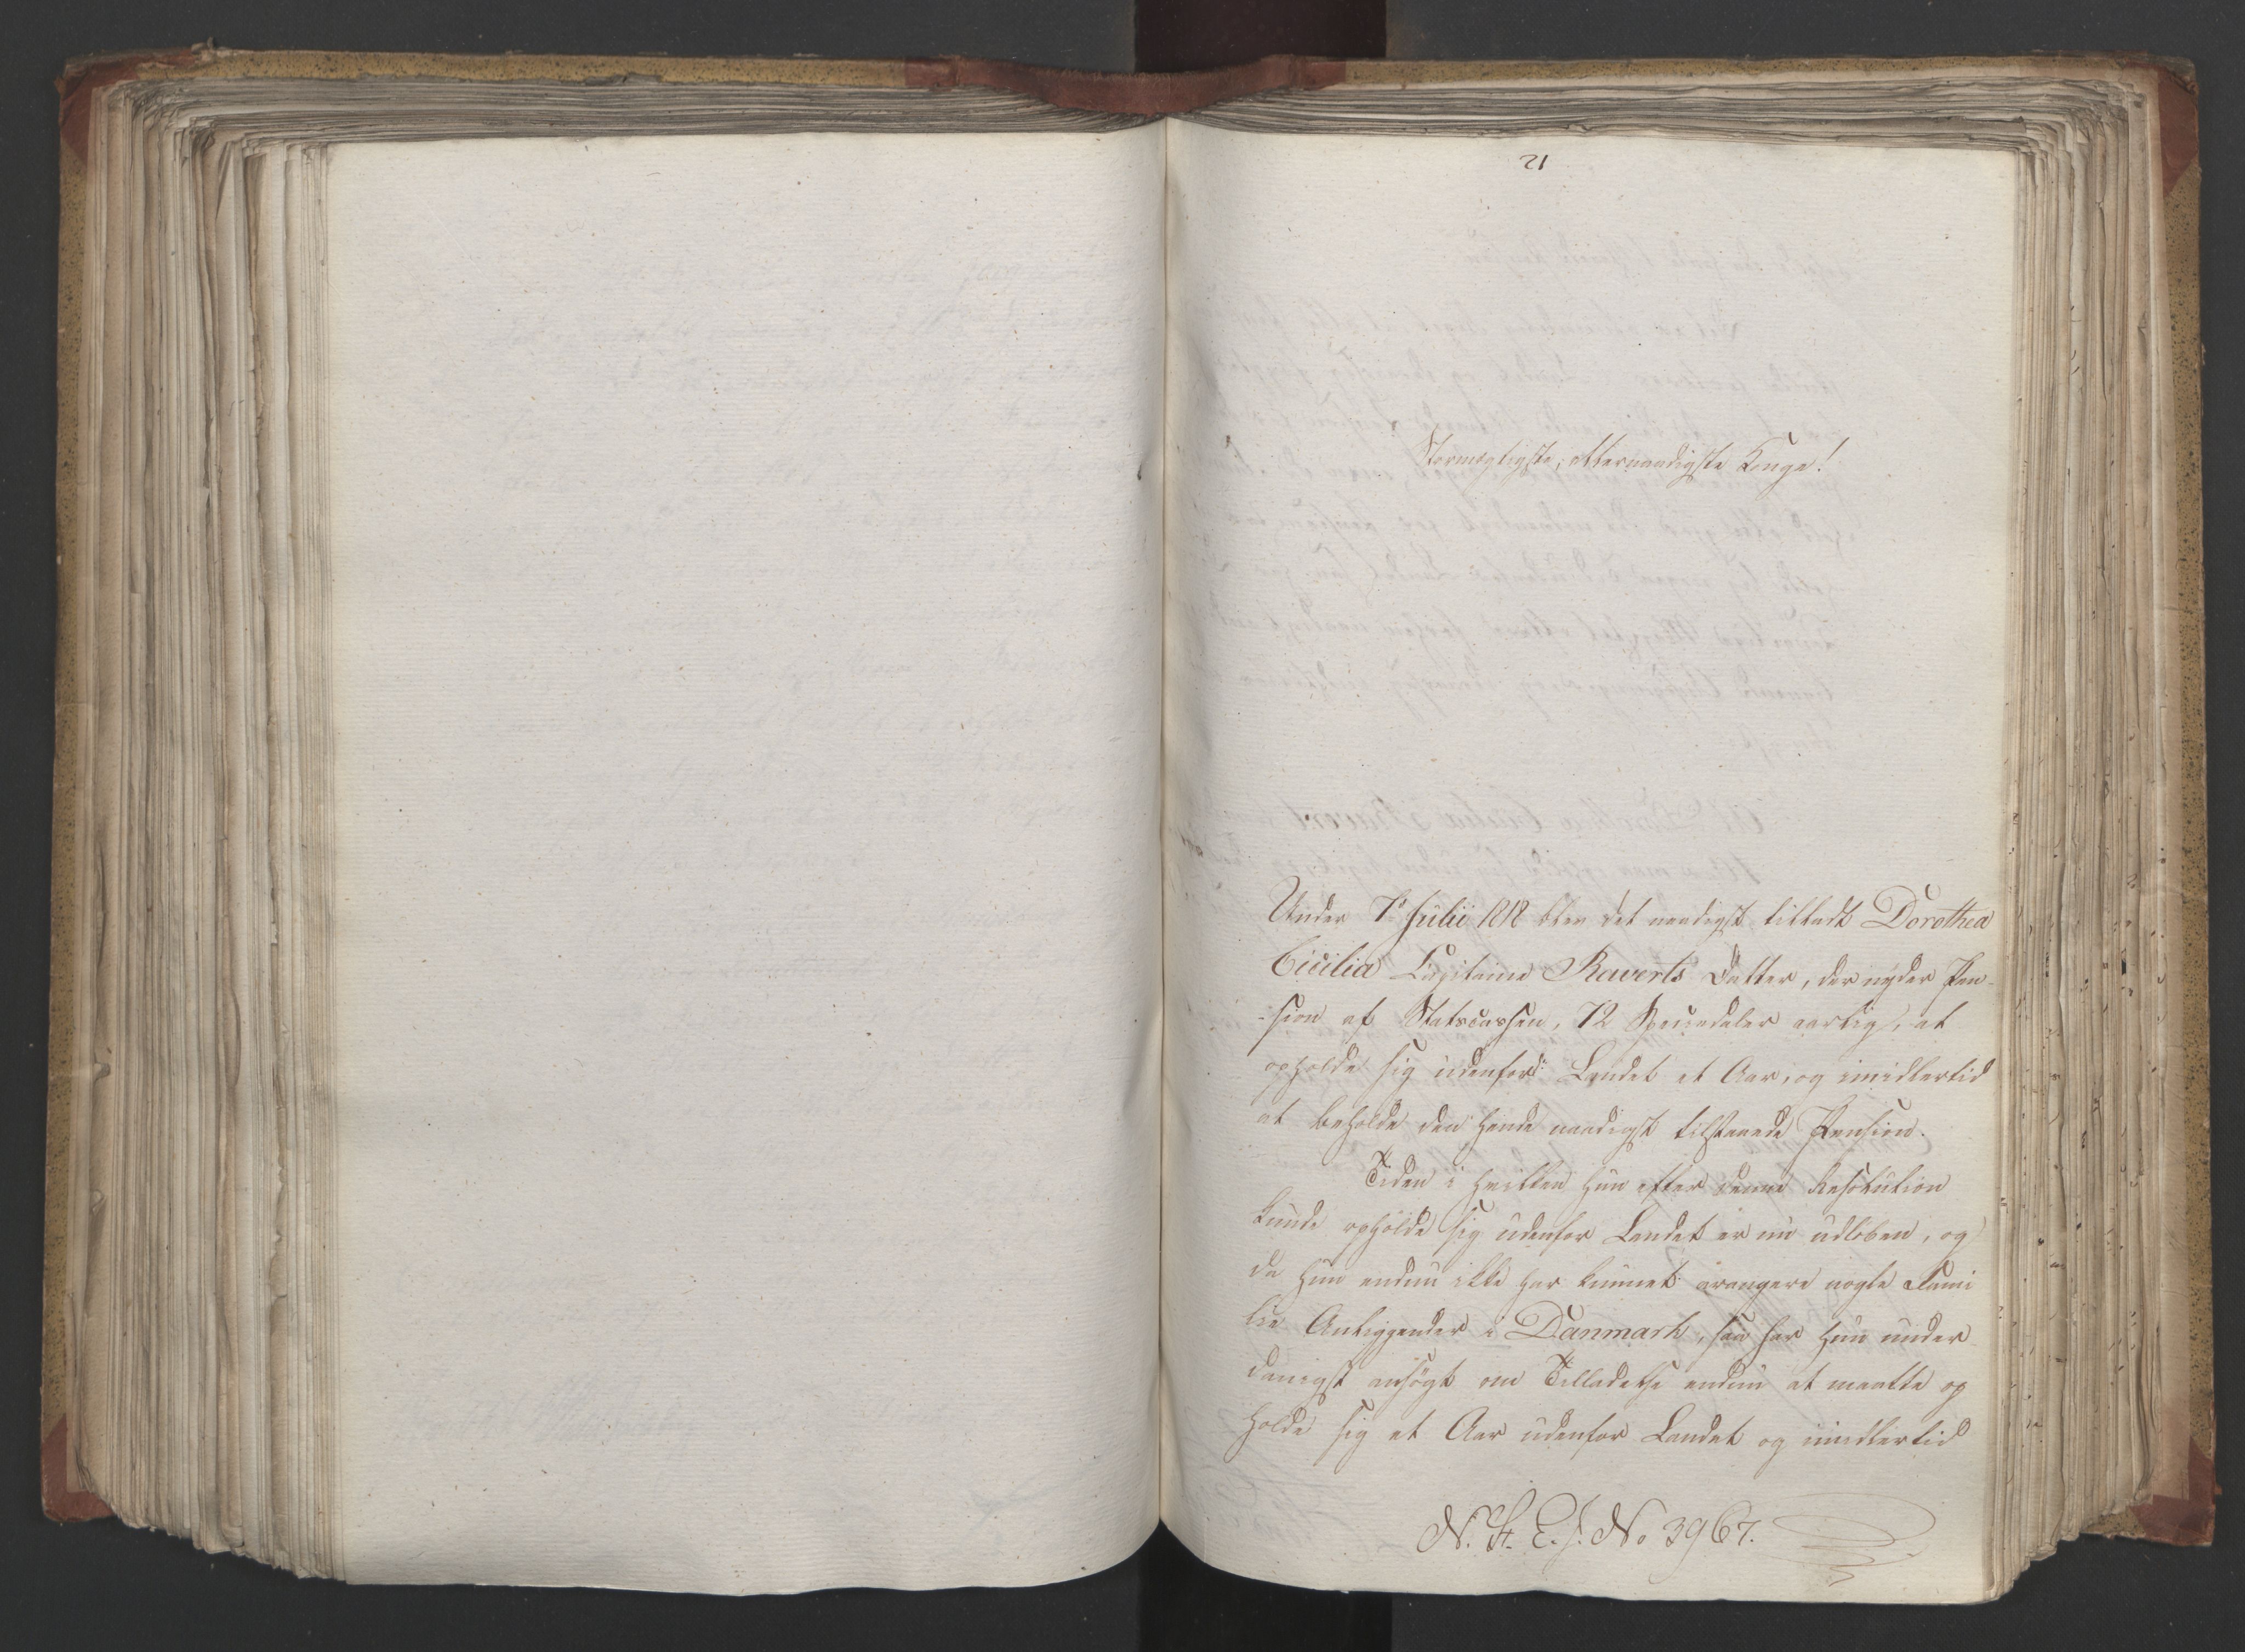 21
Stormægtigste, allernaadigste Konge!
Under 7de Julii 1818 blev det naadigst tilladt Dorothea
Cicilia Capitaine Raverts Datter, der nyder Pen-
-sion af Statscassen, 72 Speciedaler aarlig, at
opholde sig udenfor Landet et Aar, og imidlertid
at beholde den hende naadigst tilstaaede Pension.
Tiden i hvilken hun efter denne Resolution
kunde opholde sig udenfor Landet er nu udløben, og
da hun endnu ikke har kunnet arangere nogle Fami
lie Anliggender i Danmark, saa har hun under
danigst ansøgt om Tilladelse endnu at maatte op
holde sig et Aar udenfor Landet og imidlertid
N. St. E. J. No 3967.